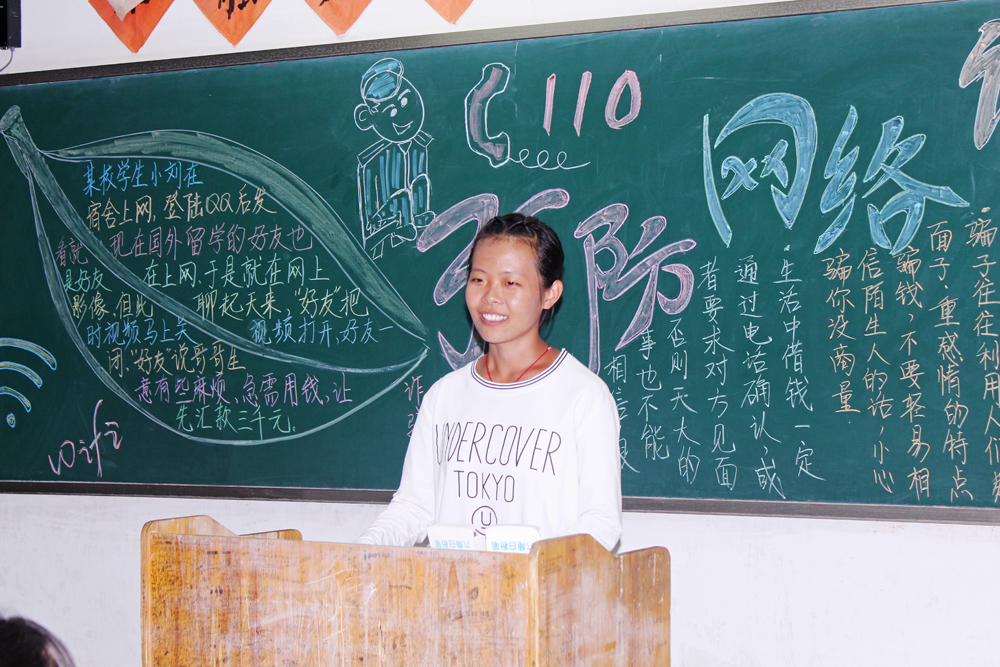 某校学生小刘在
宿舍上网,登陆QQ后发
现在国外留学的好友也
在上网.于是就在网上
聊起天来."好友"把
视频打开,好友一
看就
是好友
影像.但此
时视频马上关
闭."好友"说哥哥生
意有些麻烦、急需用钱、让
先汇款三千元.
wifi
110
防
网络
骗子往往利用人们
面子、重感情的特点
骗钱、不要轻易相
信陌生人的话,小心
骗你没商量.
·生活中借钱一定
通过电话确认,或
者要求对方见面
否则天大的
事也不能
相信
UNDERCOVER
TOKYO
U